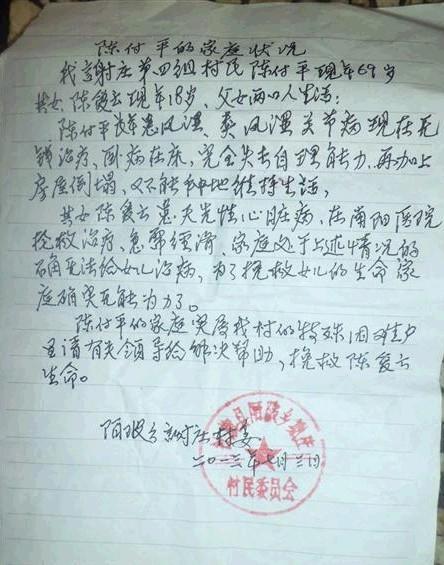 陈付平的家庭状况
我谢庄第四组村民陈付平现年69岁
其女陈爱云现年18岁、父女两口人生活:
陈付平患风湿、类风湿关节病现在无
钱治疗、卧病在床,完全失去自理能力,再加上
房屋倒塌,又不能种地维持生活,
其女陈爱云患先天性心脏病,在南阳医院
挽救治疗、急需经济、家庭处于上述情况的
确无法给女儿治病,为了挽救女儿的生命家
庭确实无能为力了。
陈付平的家庭实属我村的特殊困难户
呈请有关领导给解决帮助,挽救陈爱云
生命。
谢庄村委
二0一三年七月三日
村民委员会